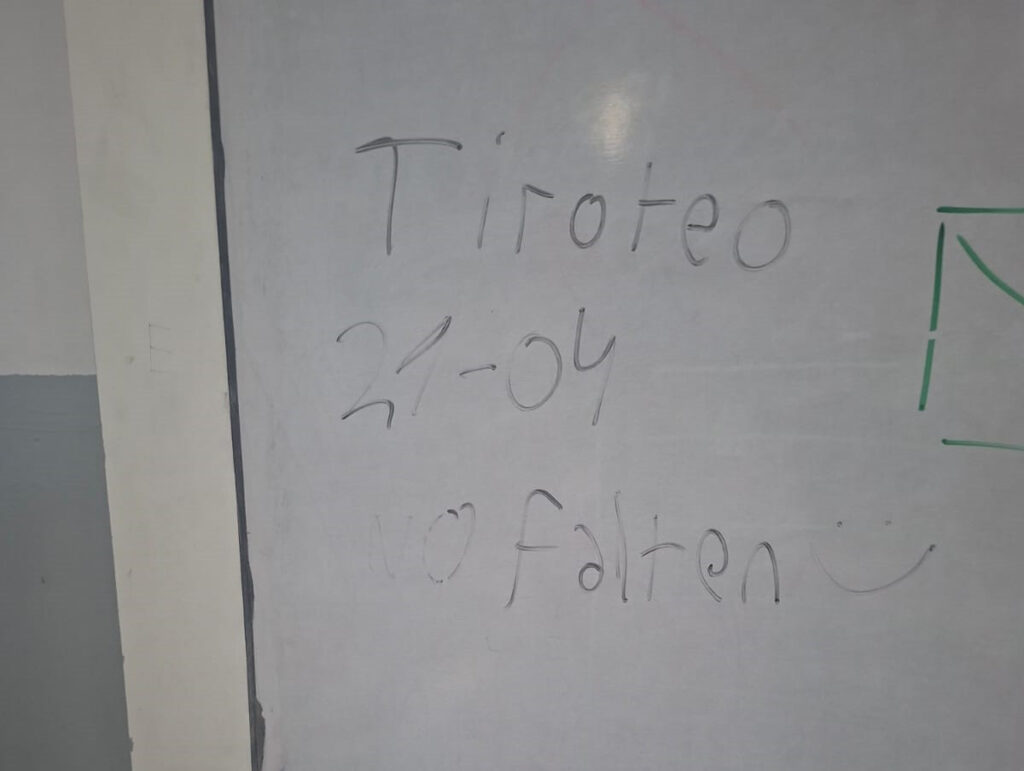 Tiroteo
21-04
NO falten